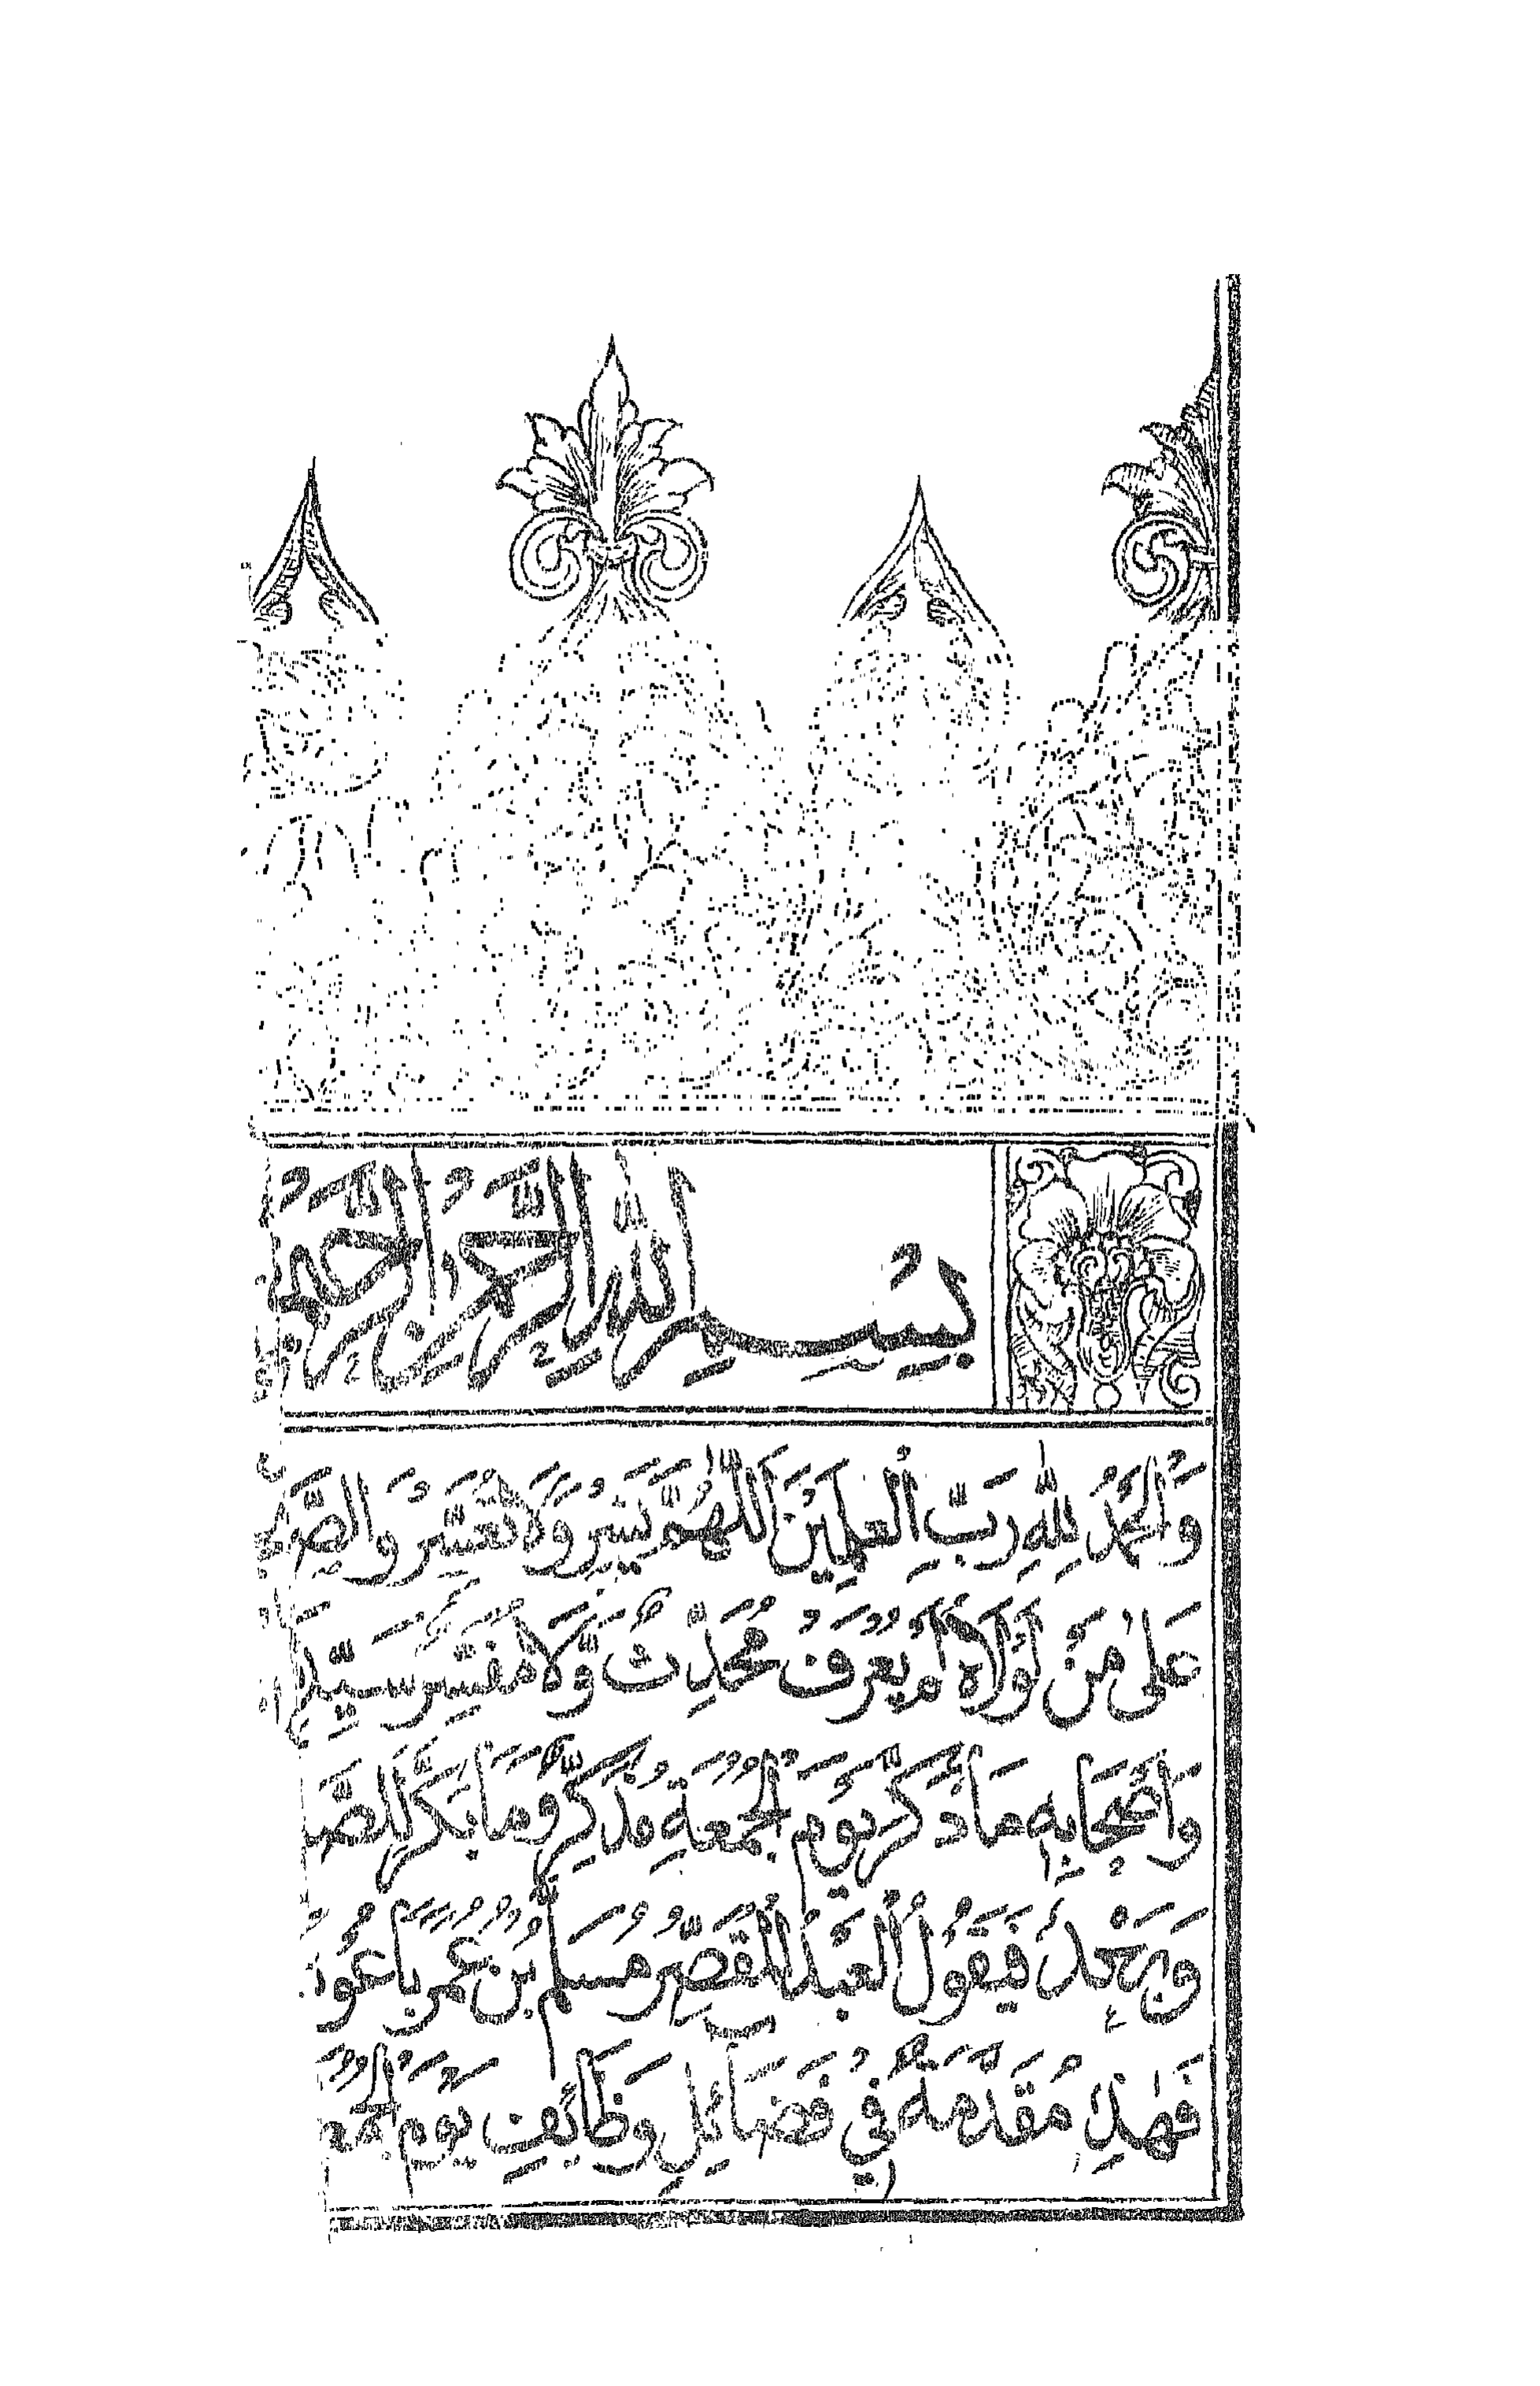 بِسْمِ اللّٰهِ الرَّحْمٰنِ الرَّحِيْمِ
وَالْحَمْدُ لِلّٰهِ رَبِّ الْعٰلَمِيْنَ اَللّٰهُمَّ يَسِّرْ وَلَا تُعَسِّرْ وَالصَّـ
عَلٰى مَنْ لَوْلَاهُ لَمْ يُعْرَفْ مُحَدِّثٌ وَّلَا مُفَسِّرٌ سَيِّدِ
وَاَصْحَابِهٖ مَا ذَكَّرَ يَوْمَ الْجُمُعَةِ مُذَكِّرٌ وَّمَا بَكَّرَ لِلصَّـ
وَبَعْدُ فَيَقُوْلُ الْعَبْدُ الْمُقَصِّرُ مُسْلِمُ بْنُ عُمَرَ بَاعَعُوْد
فَهٰذِهٖ مُقَدِّمَةٌ فِيْ فَضَائِلِ وَظَائِفِ يَوْمِ الْجُمُـ